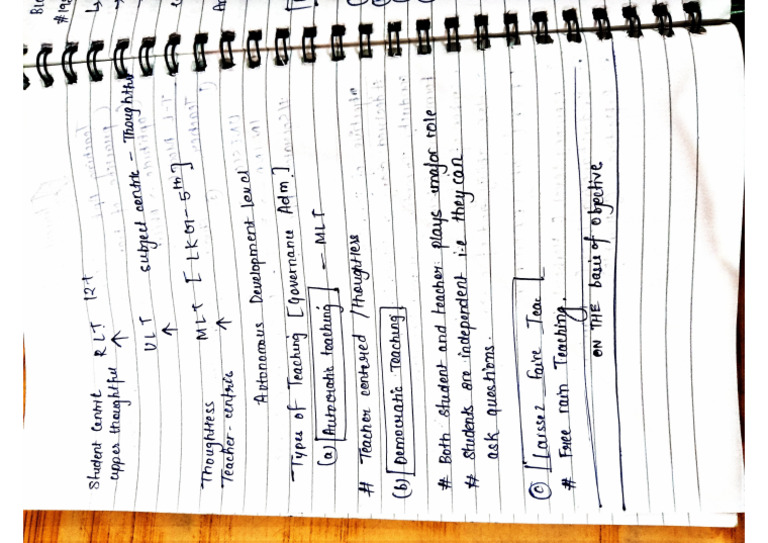 Student Centric RLT 12+
upper thoughtful ↑
ULT subject centric - Thoughtful
↑
MLT [LKG - 5th]
Thoughtless ↑
Teacher-centric
Autonomous Development level
Types of Teaching [Governance Adm.]
(a) [Autocratic teaching] - MLT
# Teacher centered / thoughtless
(b) [Democratic Teaching]
# Both student and teacher plays major role
# students are independent i.e they can
ask questions
(c) [Laissez Faire Teac]
# Free rain Teaching.
ON THE basis of objective